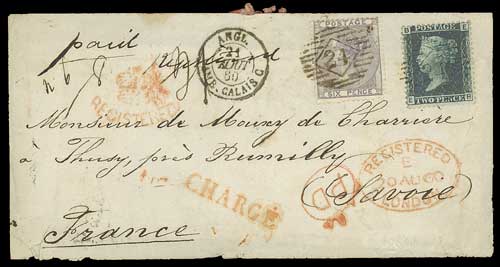 paid
ANGL.
21
AOUT
60
AMB. CALAIS C
POSTAGE
SIX PENCE
POSTAGE
TWO PENCE
REGISTERED
Monsieur de Mouxy de Charriere
à Thusy, près Rumilly
CHARGÉ
PD
REGISTERED
E
20 AU 60
LONDON
(Savoie)
France